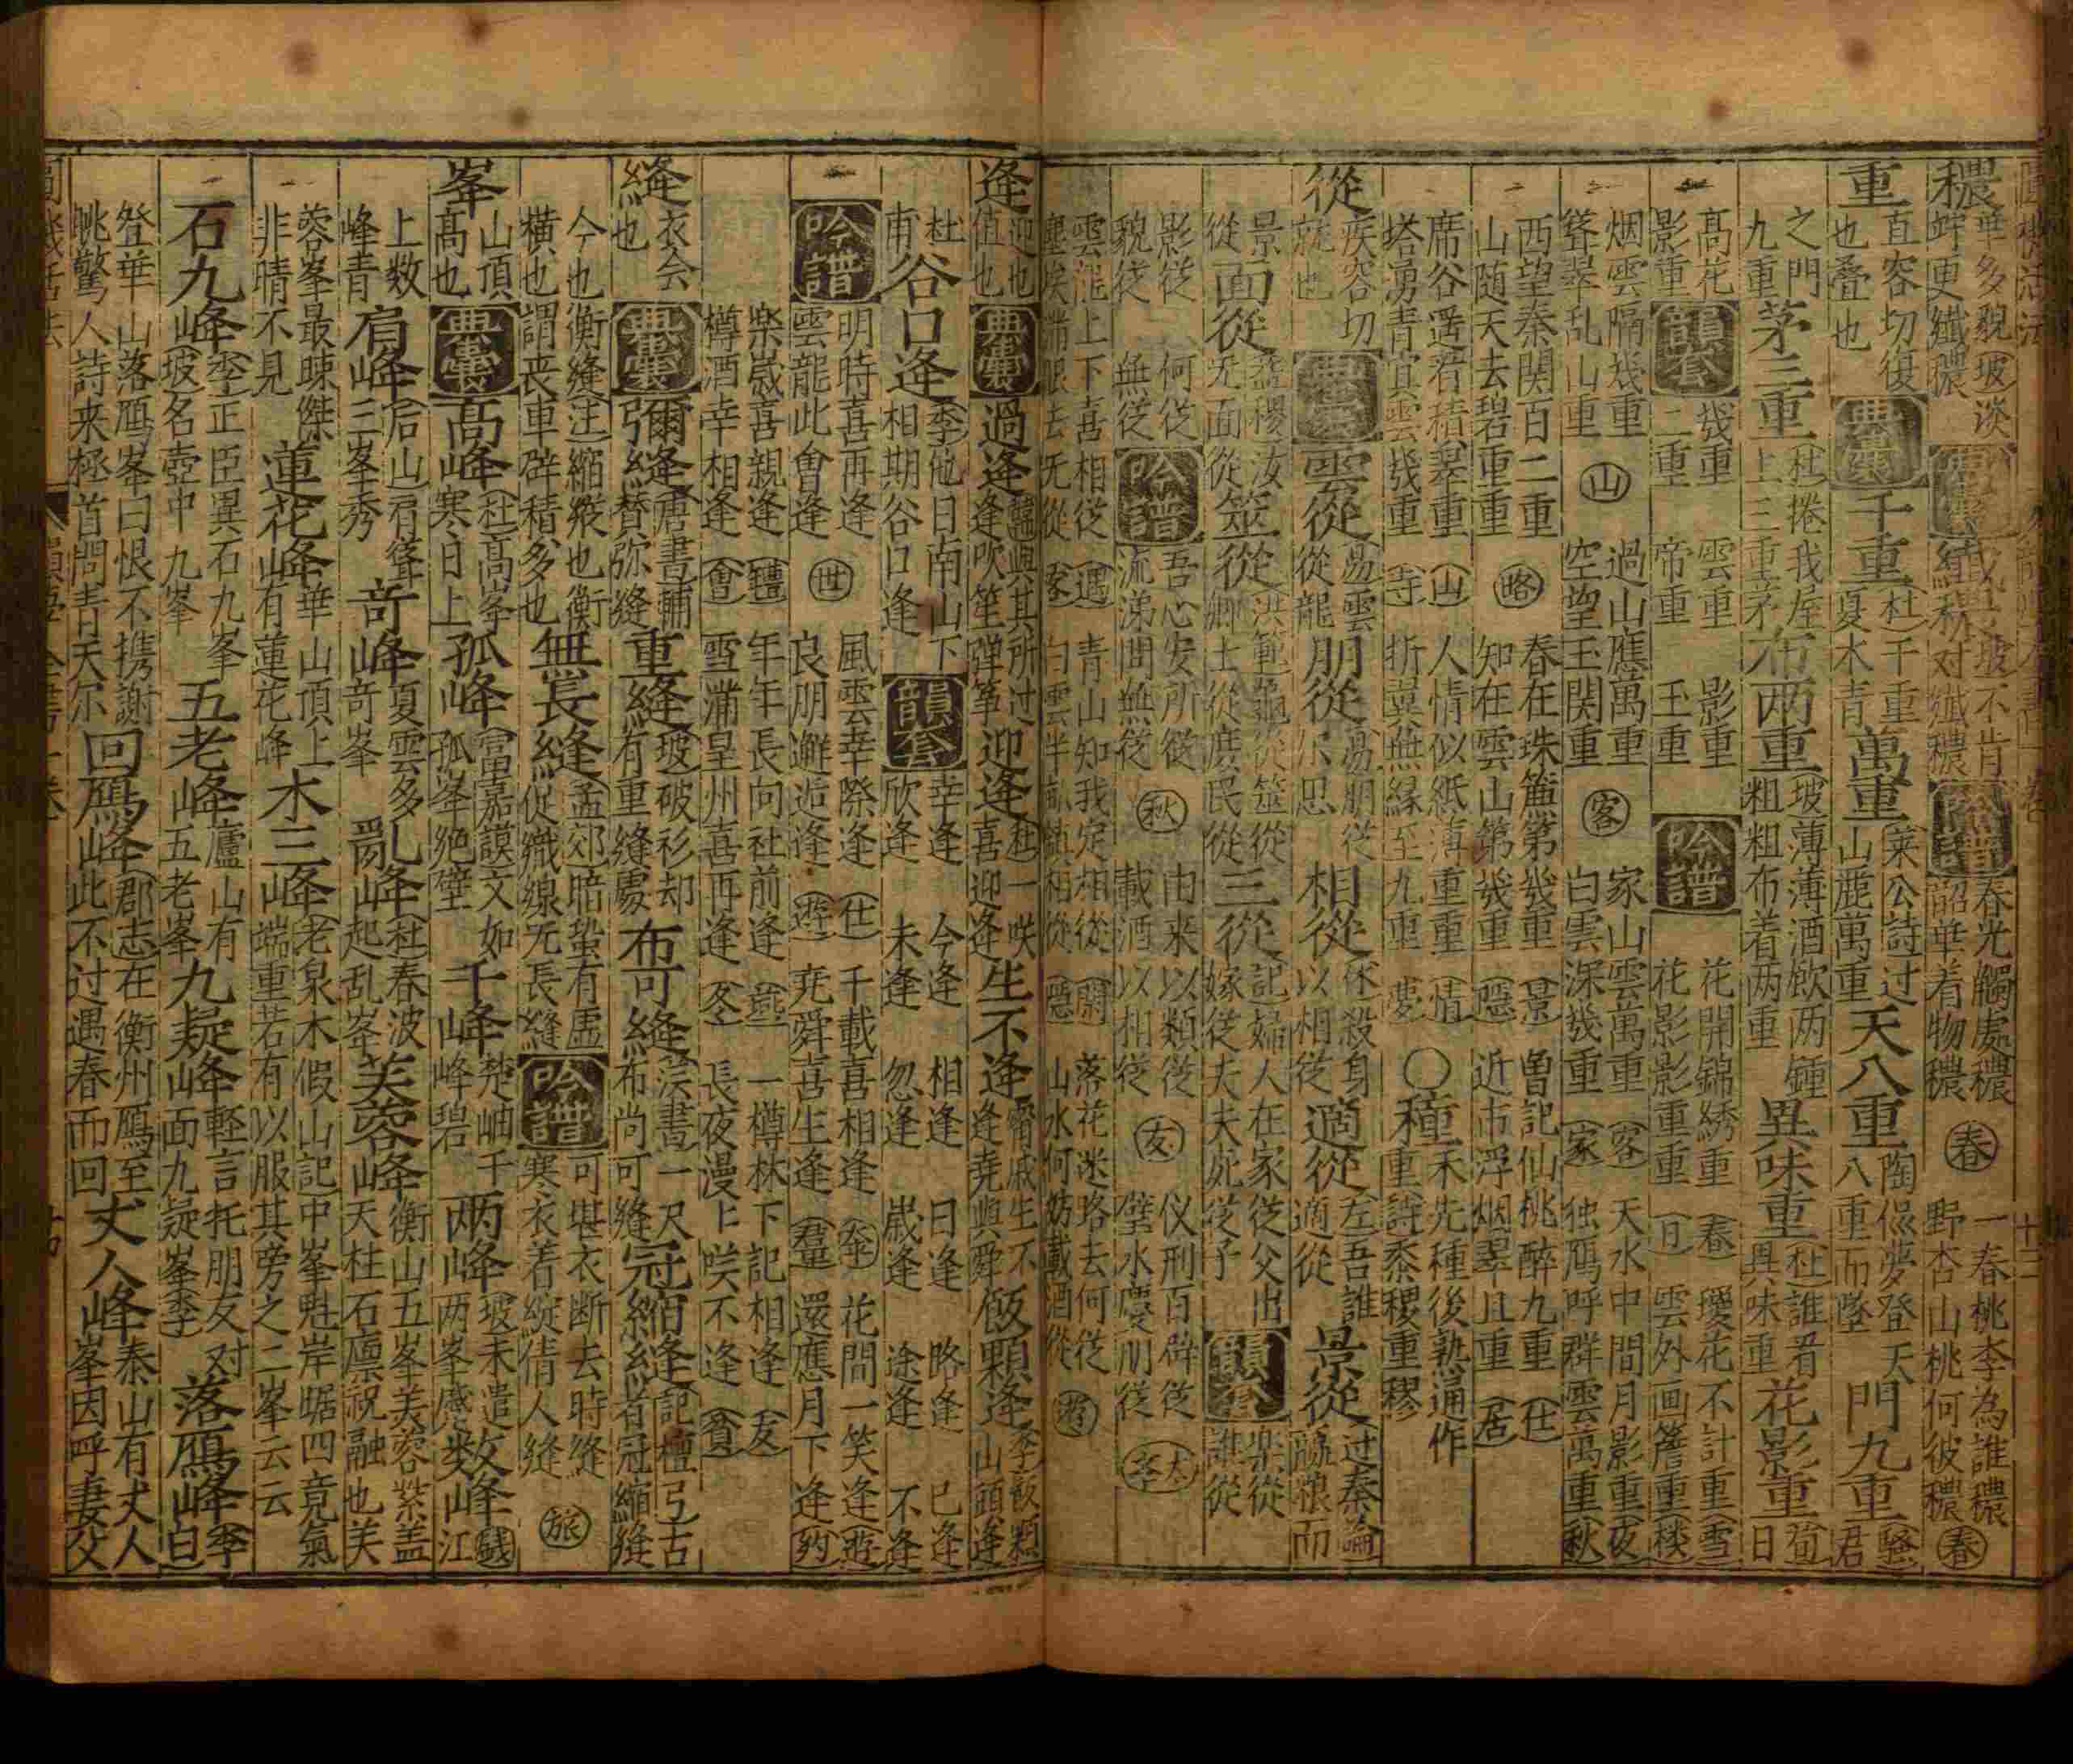 穠 華多貌 坡 淡妝更纖穠 對纖穠 吟譜 春光觸處穠 韶華着物穠 春 一春桃李為誰穠 野杏山桃何彼穠 春
重 直容切復也叠也 典囊 千重 杜 千重夏木青 萬重 萊公詩 过山麗萬重 天八重 陶侃夢登天八重而墜 門九重 騷 君
之門九重 茅三重 杜 捲我屋上三重茅 布两重 坡 薄薄酒飲两鍾粗粗布着两重 異味重 杜 誰看異味重 花影重 荀 日
高花影重 韻套 幾重 二重 雲重 帝重 影重 玉重 吟譜 花開錦綉重 花影影重重 春 日 瑷花不計重 雲外画簷重 雪 楼
烟雲隔幾重 聳翠乱山重 山 過山應萬重 空望玉関重 客 家山雲萬重 白雲深幾重 客 家 天水中間月影重 独鴈呼群雲萬重 夜 秋
西望秦関百二重 山随天去碧重重 略 春在珠簾第幾重 知在雲山第幾重 景 隱 曽記仙桃醉九重 近市浮烟翠且重 仕 居
席谷遥若積翠重 塔湧青冥雲幾重 山 寺 人情似紙薄重重 折莫無緣至九重 情 〇 種 禾先種後熟通作重 詩 黍稷重穋
從 疾容切就也 典囊 雲從 易 雲從龍 朋從 易 朋從尔思 相從 休 殺身以相從 適從 左 吾誰適從 景從 过秦論 贏糧而
景從 面從 益稷 汝无面從 筮從 洪範 龜從筮從卿士從庶民從 三從 記 婦人在家從父出嫁從夫夫死從子 韻套 樂從 誰從
影從 貌從 何從 無從 吟譜 吾心安所從 流涕問無從 秋 由来以類從 載酒以相從 友 仪刑百辟從 璧水慶朋從
雲龍上下喜相從 塵埃滿眼去无從 遇 青山知我定相從 白雲半畝鎮相從 閑 隱 落花迷路去何從 山水何妨載酒從 游
逢 迎也值也 典囊 過逢 韓 與其所过逢吹笙弹筝 迎逢 杜 一咲喜迎逢 生不逢 甯戚 生不逢堯與舜 飯顆逢 李 飯顆山頭逢
杜甫 谷口逢 李 他日南山下相期谷口逢 韻套 幸逢 欣逢 今逢 未逢 相逢 忽逢 日逢 嵗逢 路逢 途逢 已逢 不逢
吟譜 明時喜再逢 雲龍此會逢 世 風雲幸際逢 良朋邂逅逢 仕 遊 千載喜相逢 尭舜喜生逢 羣 花間一笑逢 還應月下逢 遊 約
樂嵗喜親逢 樽酒幸相逢 會 年年長向社前逢 雪滿皇州喜再逢 燕 冬 一樽林下記相逢 長夜漫上咲不逢 友 貧
縫 衣会也 典囊 彌縫 唐書 輔賛弥縫 重縫 坡 破衫却有重縫處 布可縫 漢書 一尺布尚可縫 冠縮縫 記檀弓 古者冠縮縫
今也衡縫 注 縮縱也衡橫也謂丧車辟積多也 無長縫 孟郊 暗蛩有虚促織線无長縫 吟譜 可堪衣断去時縫 寒衣着綻倩人縫 旅
峯 山頂高也 典囊 高峰 杜 高峯寒日上 孤峰 富嘉謨文如孤峯絶壁 千峰 楚岫千峰碧 两峰 坡 未遣两峯感 数峰 錢 江
上数峰青 肩峰 后山 肩聳三峯秀 竒峰 夏雲多竒峯 亂峰 杜 春波起乱峯 芙蓉峰 衡山五峯芙蓉紫盖天柱石廪祝融也芙
蓉峯最晴傑非晴不見 蓮花峰 華山頂上有蓮花峰 木三峰 老泉木假山記 中峯魁岸踞四竟氣端重若有以服其旁之二峯云云
二石九峰 坡 李正臣異石九峯名壺中九峯 五老峰 廬山有五老峯 九疑峰 輕言托朋友对面九疑峯 李 落鴈峰 李白
登華山落鴈峯曰恨不携謝朓驚人詩来極首問青天尔 回鴈峰 郡志 在衡州鴈至此不过遇春而回 丈人峰 泰山有丈人峯因呼妻父